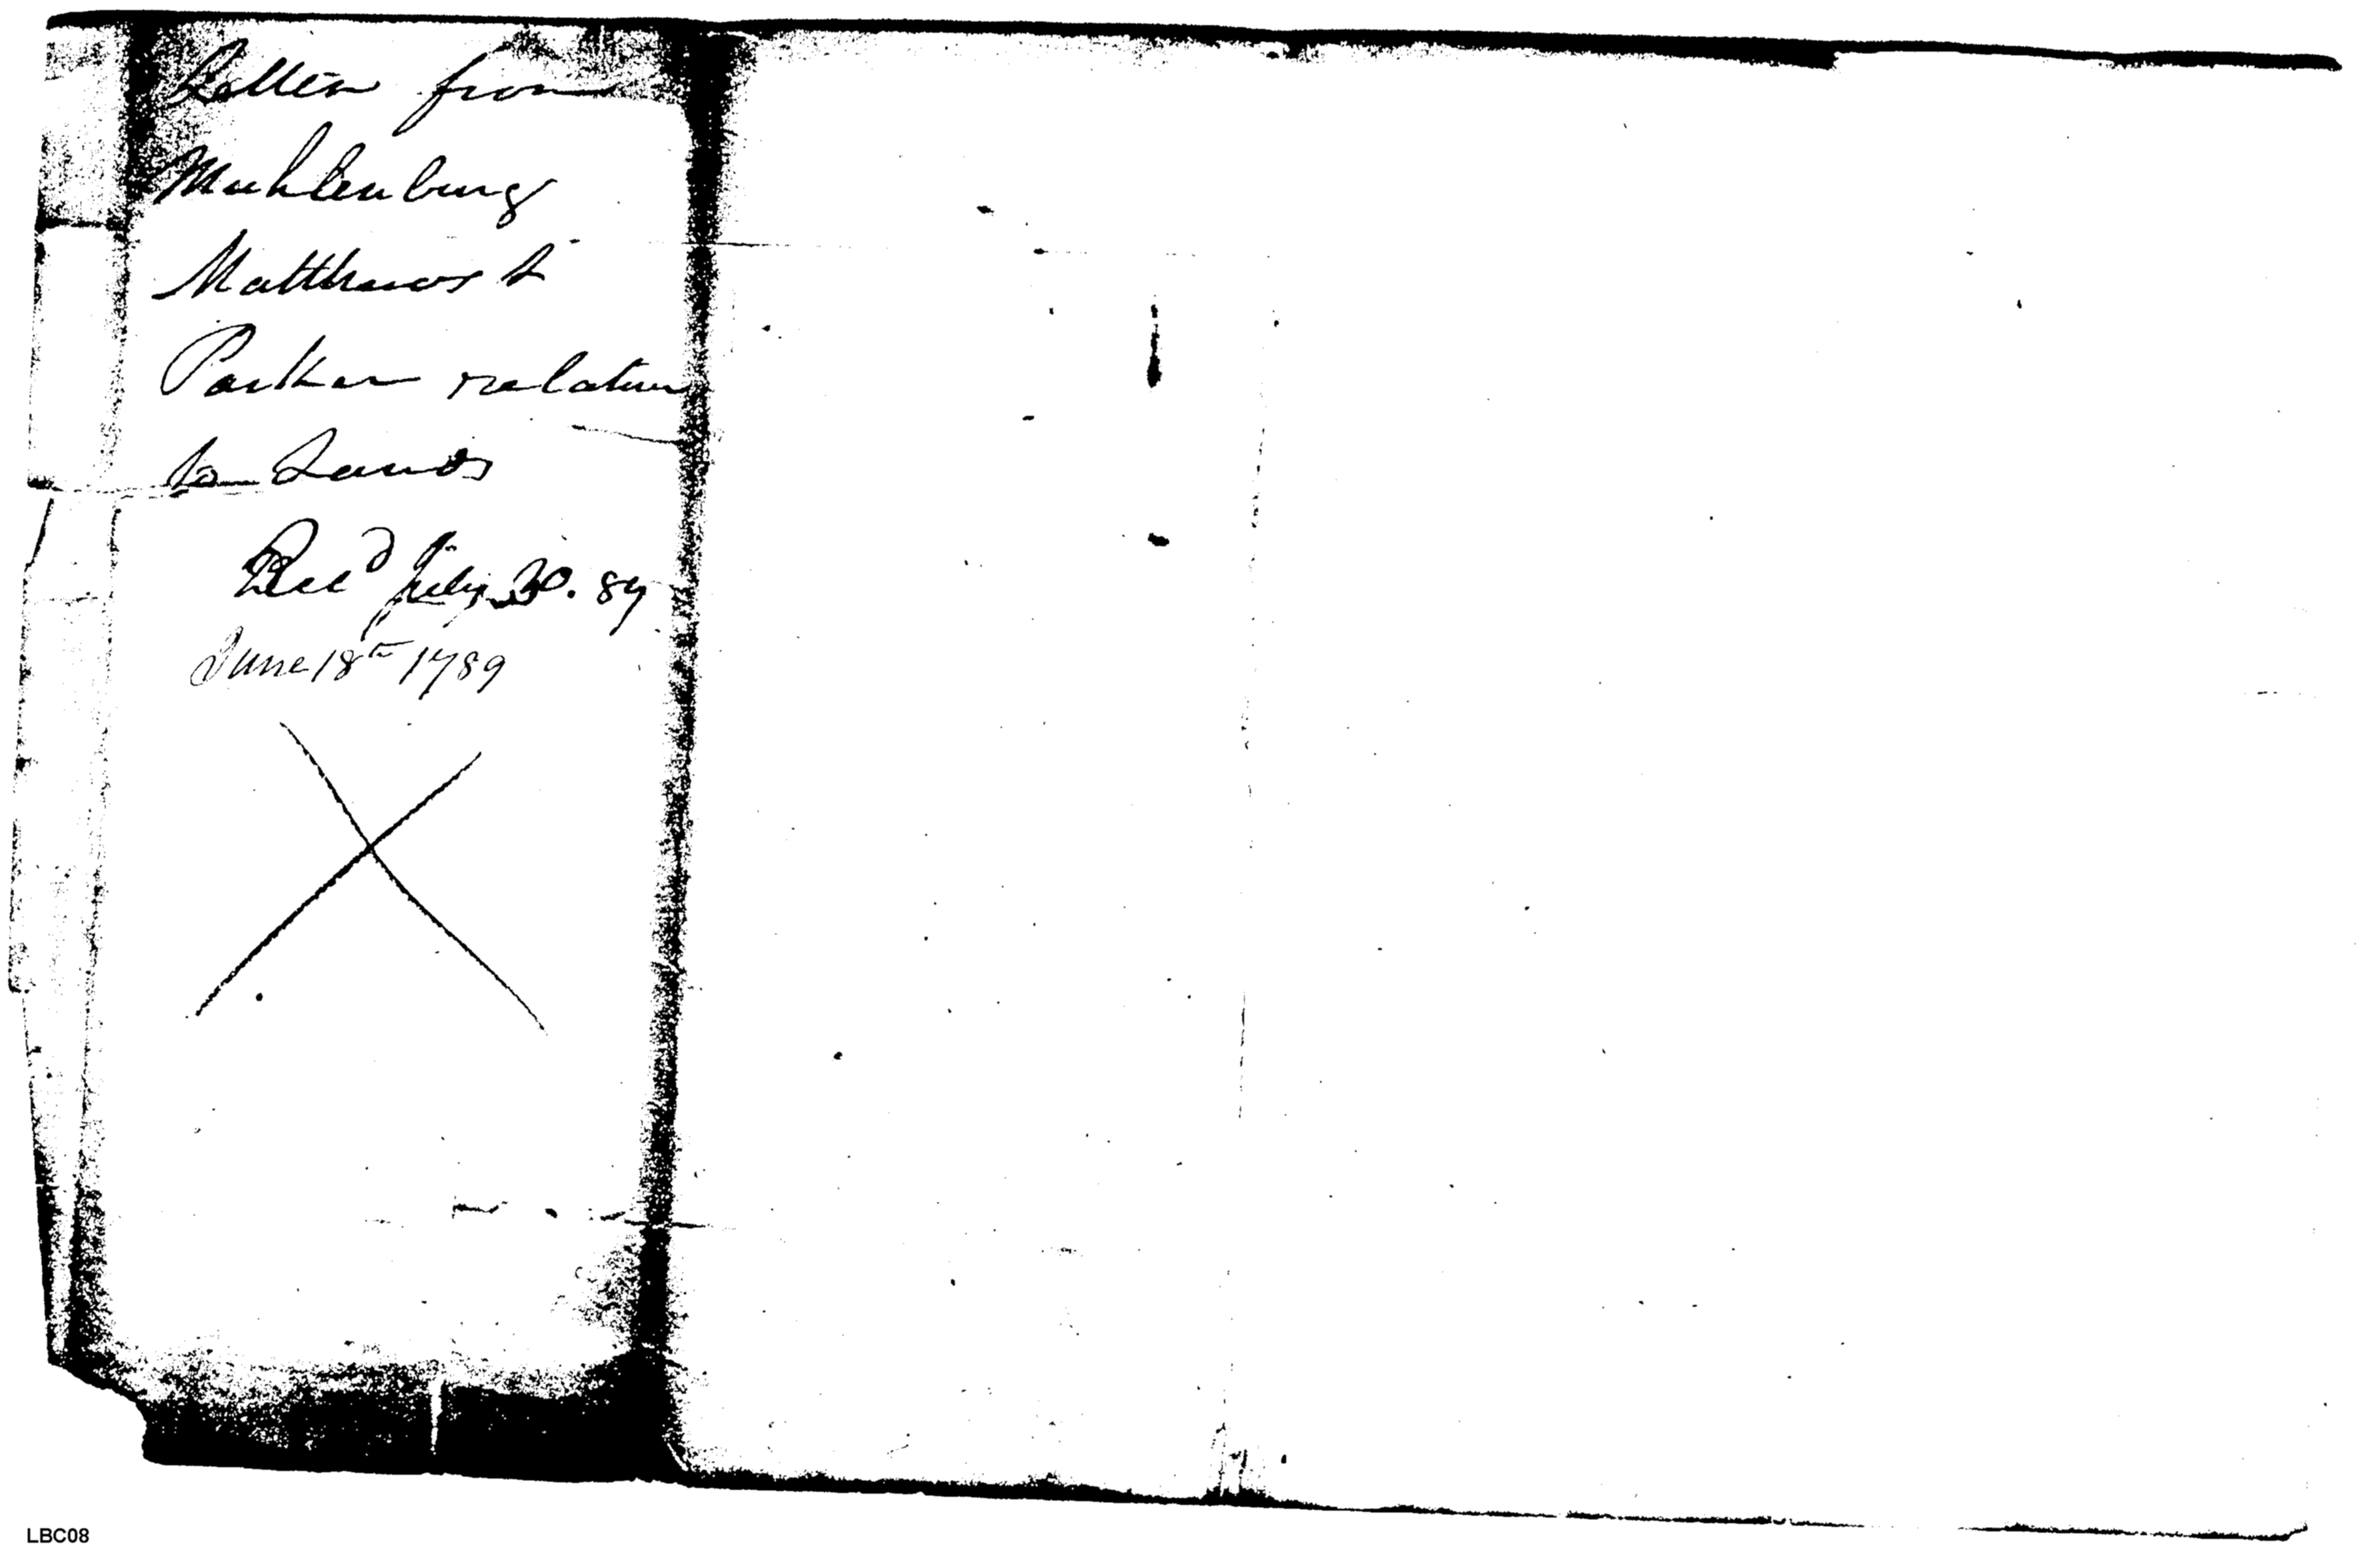 Letter from
Muhlenburg
Matthews &
Parker relative
to Lands
Recd July 20. 89
June 18th 1789
LBC08